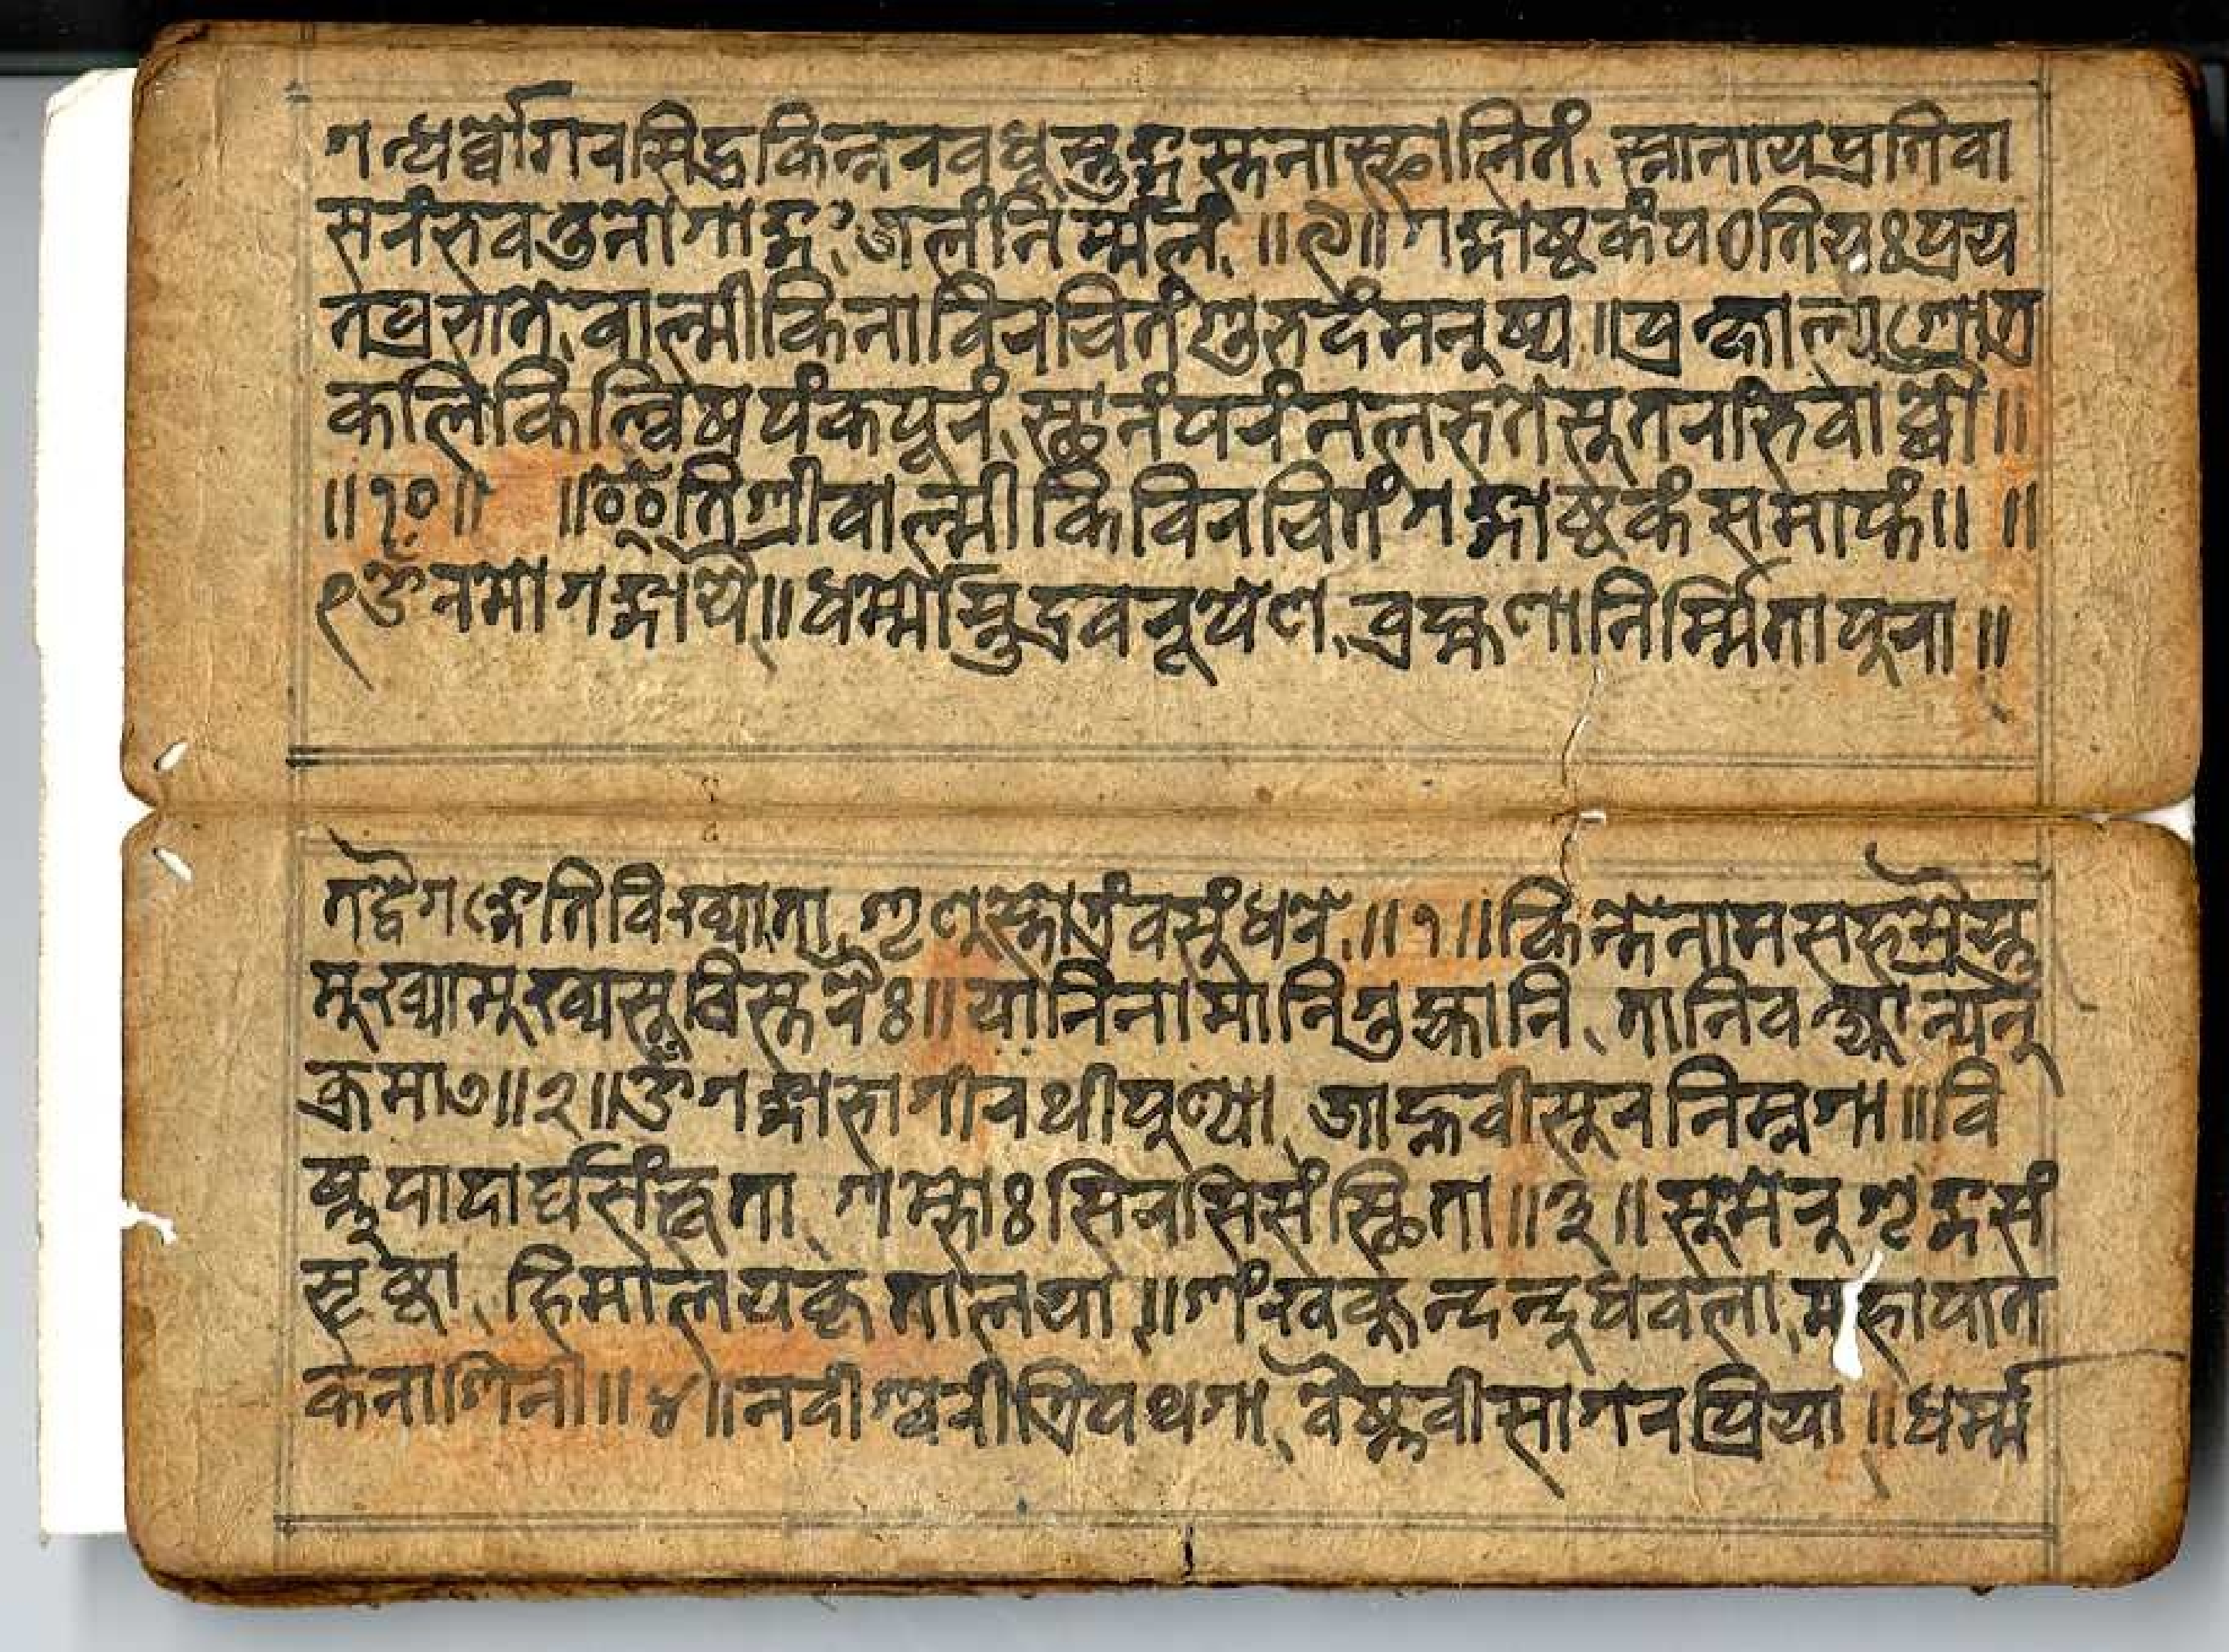 गन्धर्व्वागरसिद्धकिन्नरवधूस्तुङ्गस्तनास्फालितं, स्नानायप्रतिवा
सरंभवतुनोगाङ्गंजलंनिर्म्मलं, ॥९॥ गङ्गाष्टकंपठतियःप्रय
तप्रभाते, वाल्मीकिनाविरचितंशुभदंमनुष्य ॥ प्रक्षाल्यगात्र
कलिकिल्विषपंकपूरं, स्थानंपरंनलभतेसूतरांभवाब्धौ ॥
॥१०॥ ॥इतिश्रीवाल्मीकिविरचितंगङ्गाष्टकंसमाप्तं॥ ॥
ॐनमोगङ्गायै॥धर्म्मास्तुद्रवरूपेण, ब्रह्मणानिर्म्मितापूरा॥
तद्वैगङ्गेतिविख्याता, वसुंधरे,॥१॥किन्तेनामसहस्रैस्तु
मूख्यामूख्यसूविस्तरैः॥यानिनामानिगुह्यानि, तानिवक्ष्याम्यनु
क्रमात्॥२॥ॐगङ्गाभागीरथीपूण्या, जाह्नवीसूरनिम्नगा॥वि
ष्णुपादार्घसंद्भूता, शम्भोःसिरसिसंस्थिता॥३॥सूमेरूशृङ्गसं
सृष्टा, हिमालयकृतालया॥शंखकून्दन्दूधवला, महापात
कनाशिनी॥४॥नदीश्वरीत्रिपथगा, वैष्णवीसागरप्रिया॥धर्म्म